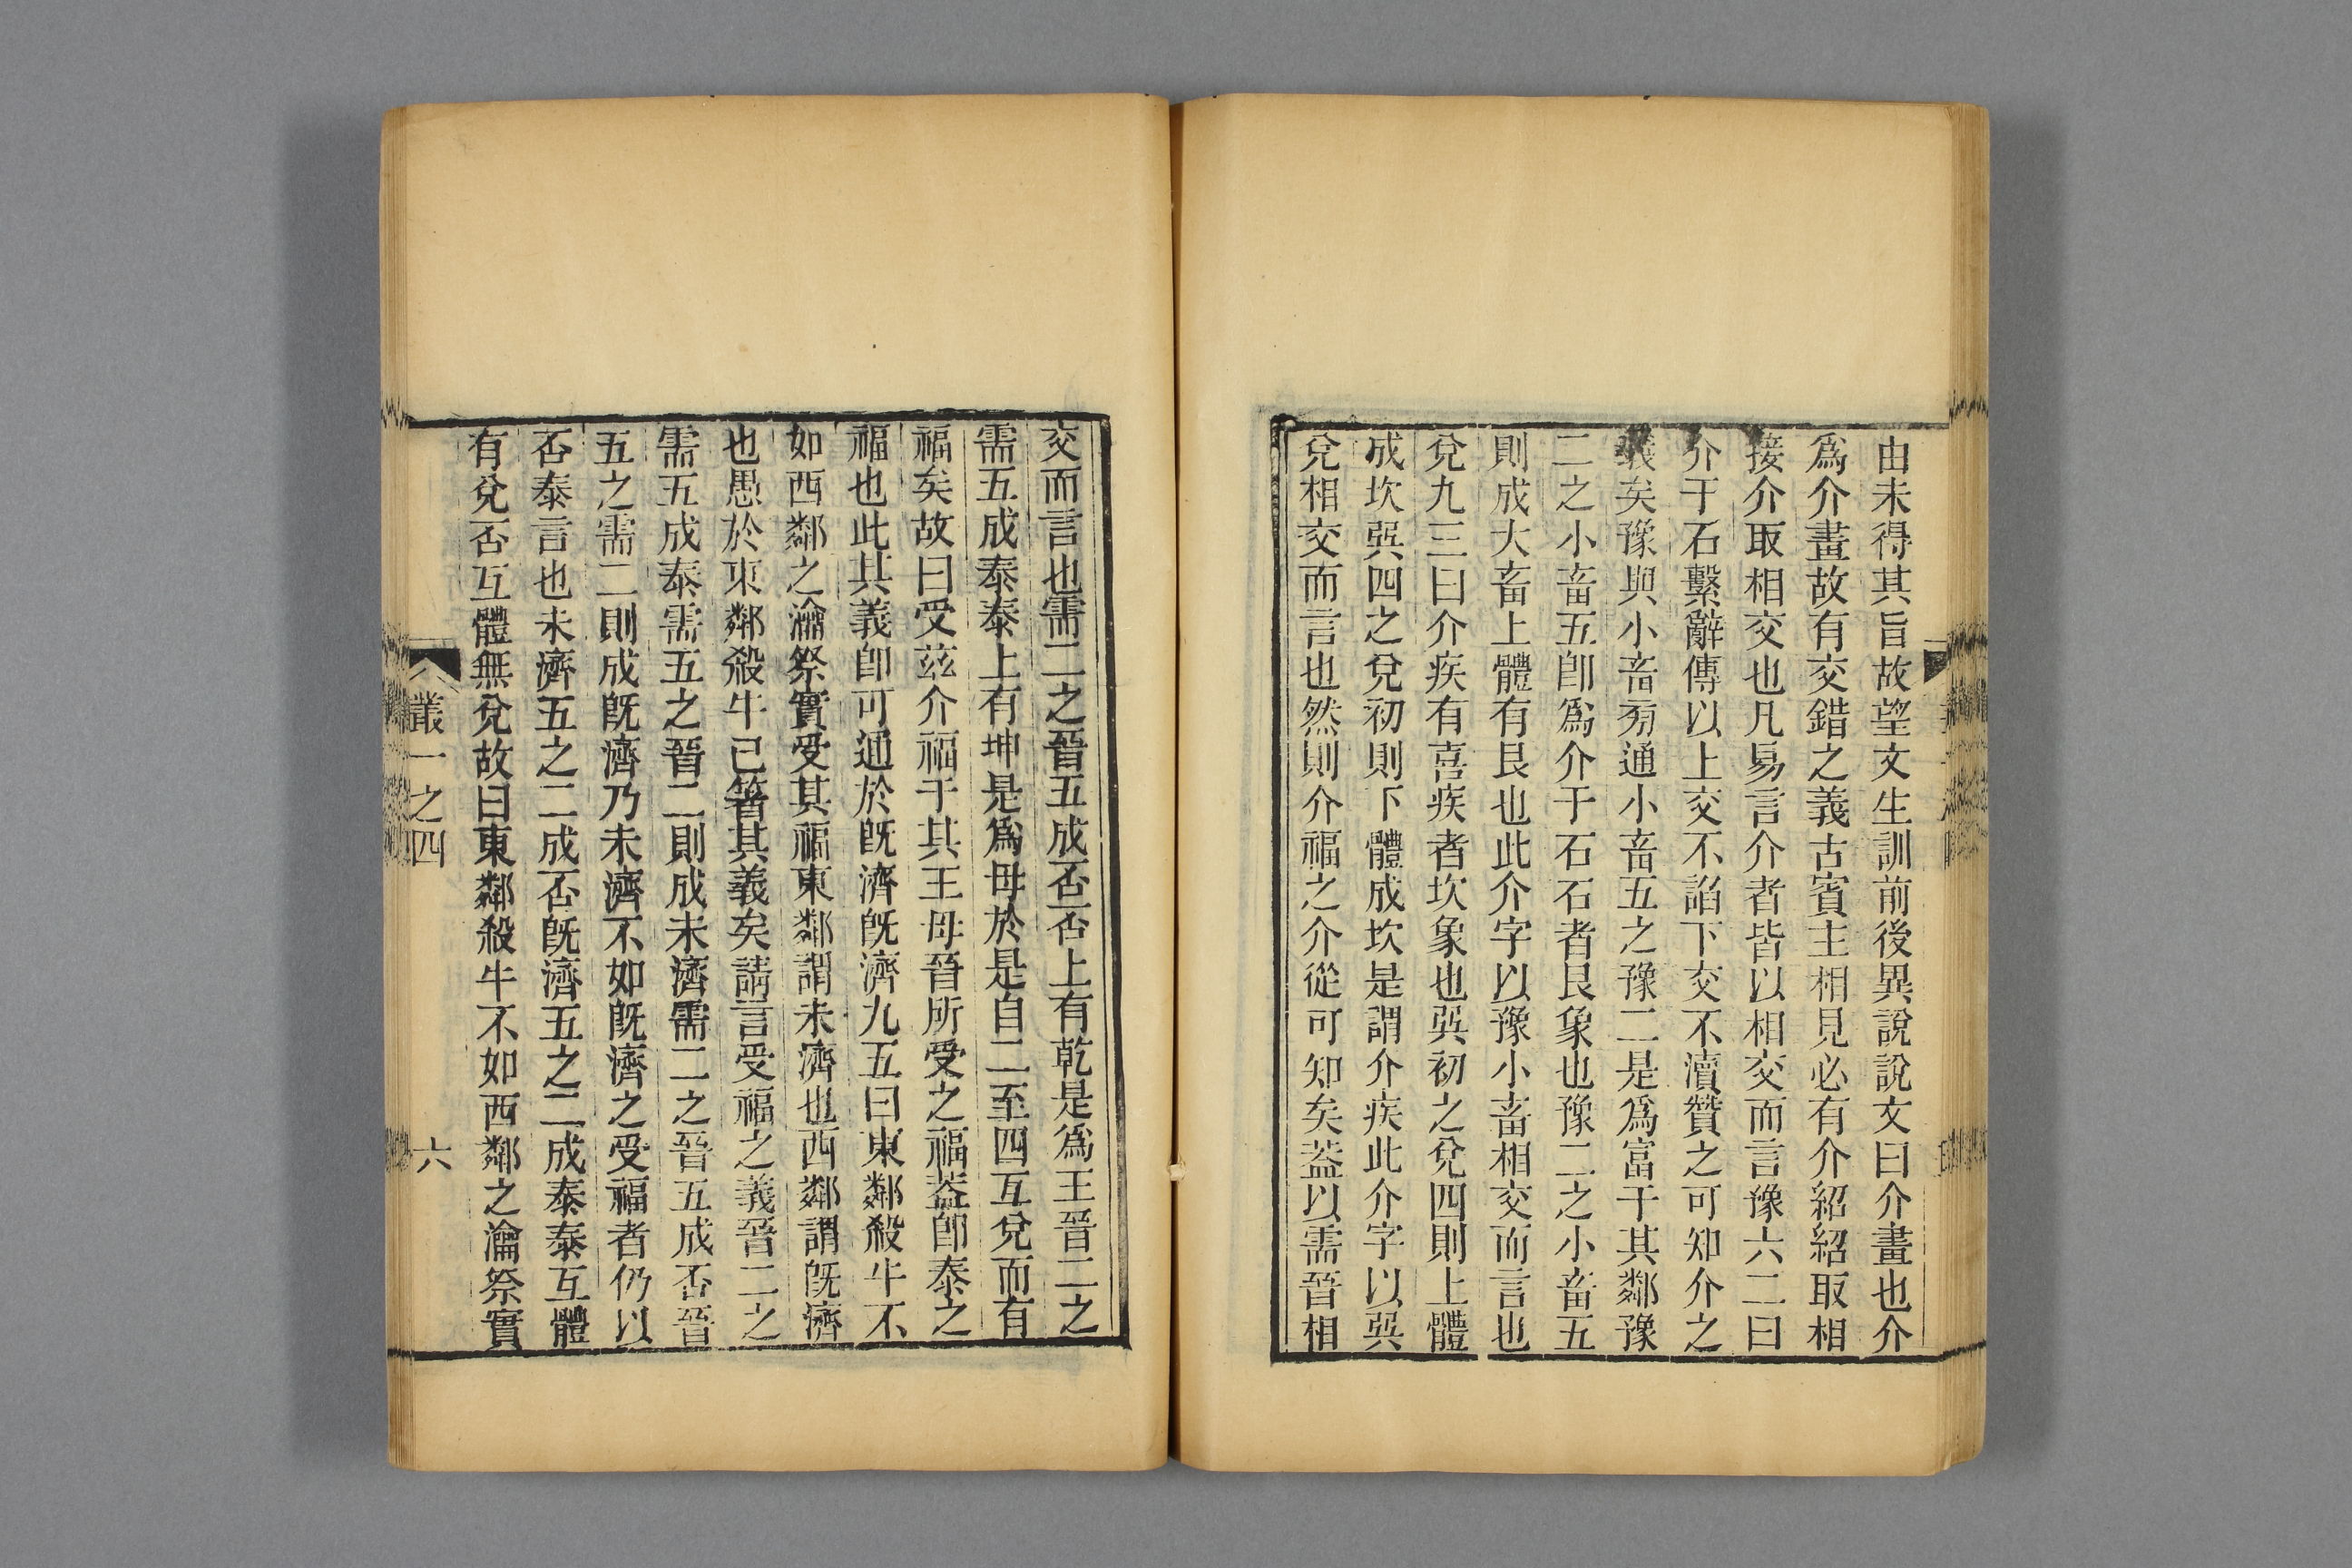 由未得其旨故望文生訓前後異說說文曰介畫也介
爲介畫故有交錯之義古賓主相見必有介紹紹取相
接介取相交也凡易言介者皆以相交而言豫六二曰
介于石繫辭傳以上交不諂下交不瀆贊之可知介之
義矣豫與小畜㫄通小畜五之豫二是爲富于其鄰豫
二之小畜五卽爲介于石石者艮象也豫二之小畜五
則成大畜上體有艮也此介字以豫小畜相交而言也
兌九三曰介疾有喜疾者坎象也巽初之兌四則上體
成坎巽四之兌初則下體成坎是謂介疾此介字以巽
兌相交而言也然則介福之介從可知矣葢以需晉相
交而言也需二之晉五成否否上有乾是爲王晉二之
需五成泰泰上有坤是爲母於是自二至四互兌而有
福矣故曰受茲介福于其王母晉所受之福葢卽泰之
福也此其義卽可通於旣濟旣濟九五曰東鄰殺牛不
如西鄰之瀹祭實受其福東鄰謂未濟也西鄰謂旣濟
也愚於東鄰殺牛已箸其義矣請言受福之義晉二之
需五成泰需五之晉二則成未濟需二之晉五成否晉
五之需二則成旣濟乃未濟不如旣濟之受福者仍以
否泰言也未濟五之二成否旣濟五之二成泰泰互體
有兌否互體無兌故曰東鄰殺牛不如西鄰之瀹祭實
叢一之四
六